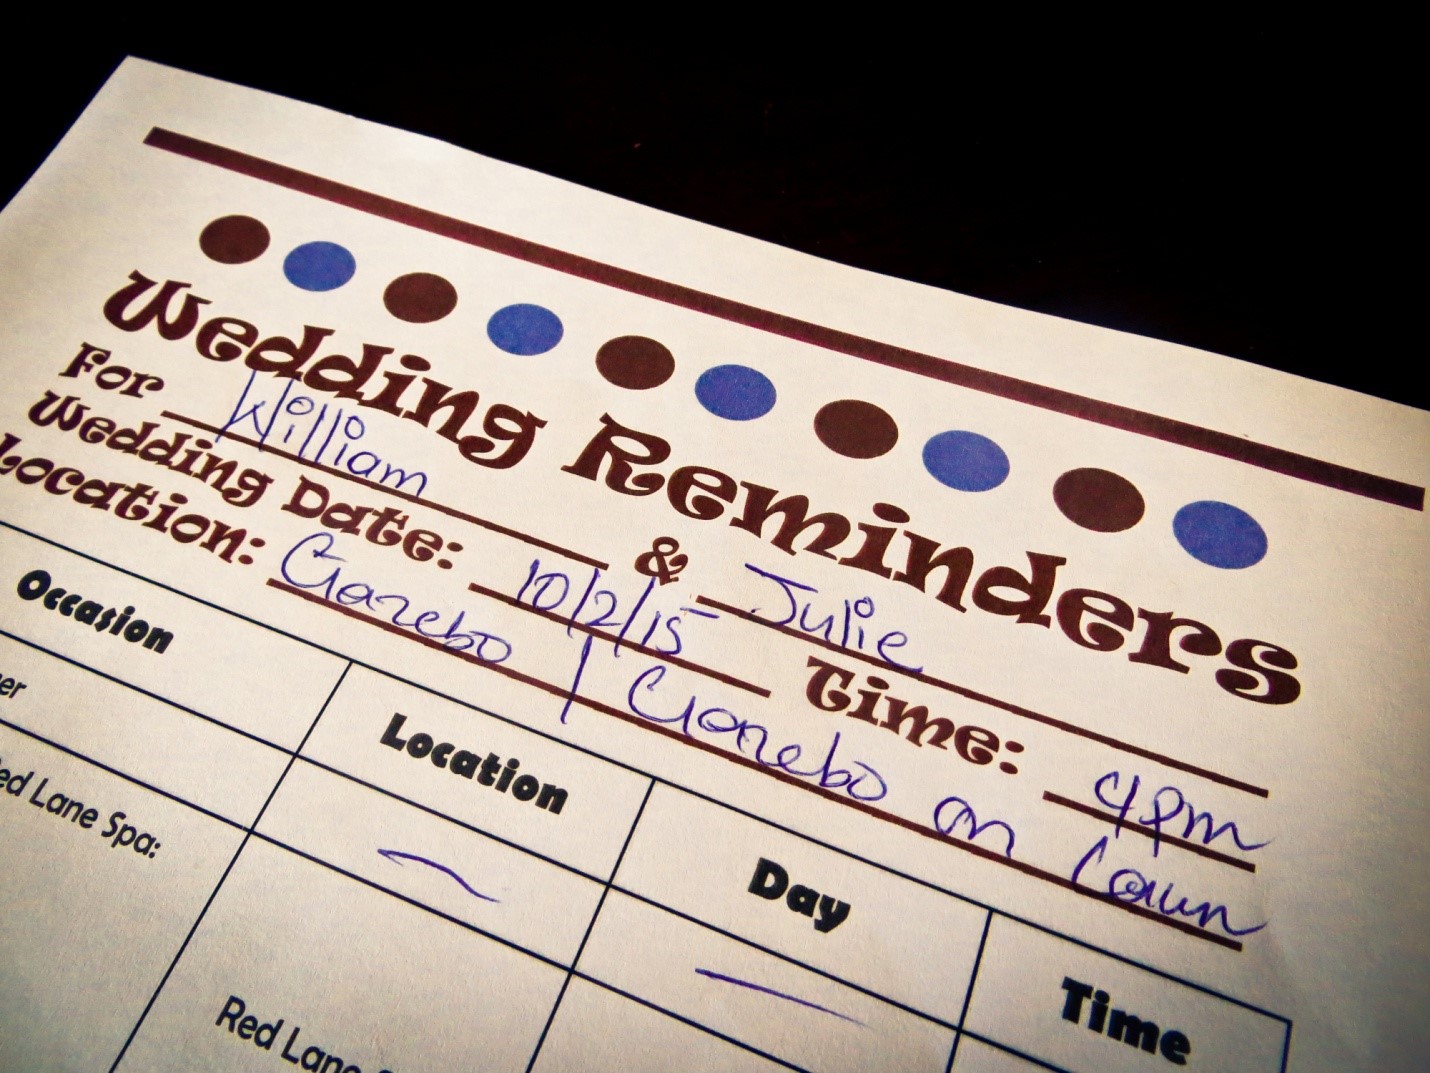 Wedding Reminders
For William & Julie
Wedding Date: 10/2/15 Time: 4pm
Location: Gazebo / Gazebo on Lawn
Occasion Location Day Time
Red Lane Spa:
Red Lane